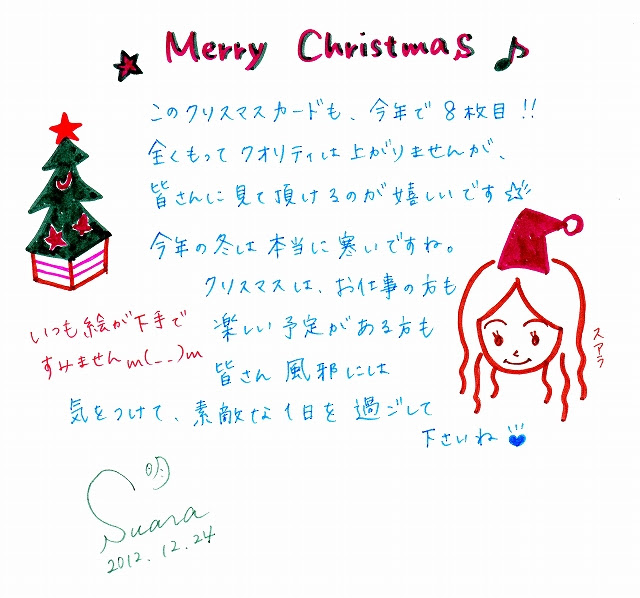 Merry Christmas
このクリスマスカードも、今年で8枚目!!
全くもってクオリティは上がりませんが、
皆さんに見て頂けるのが嬉しいです☆
今年の冬は本当に寒いですね。
クリスマスは、お仕事の方も
楽しい予定がある方も
皆さん風邪には
気をつけて、素敵な1日を過ごして
下さいね
いつも絵が下手で
すみませんm(_ _)m
スアラ
Suara
2012.12.24